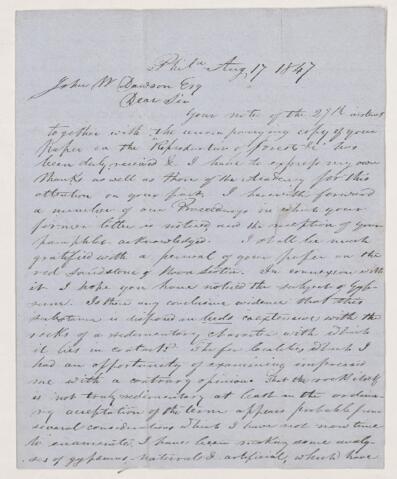 Phila Aug, 17 1847
John W Dawson Esq
Dear Sir
Your note of the 29th instant
together with the accompanying copy of your
Paper on the Reproduction of Forests &c has
been duly received & I have to express my own
thanks as well as those of the Academy for this
attention on your part, I herewith forward
a number of our Proceedings in which your
former letter is noticed and the reception of your
pamphlet acknowledged. I shall be much
gratified with a perusal of your paper on the
red Sandstone of Nova Scotia. In connexion with
it I hope you have noticed the subject of Gyp-
sum. Is there any conclusive evidence that this
substance is disposed in beds cotemporaneous with the
rocks of a sedimentary character with which
it lies in contact. The few localities which I
had an opportunity of examining impressed
me with a contrary opinion. That the rock itself
is not truly sedimentary at least in the ordina-
ry acceptation of the term appears probable from
several considerations which I have not now time
to enumerate. I have been making some analy-
ses of gypsums - natural & artificial, which have